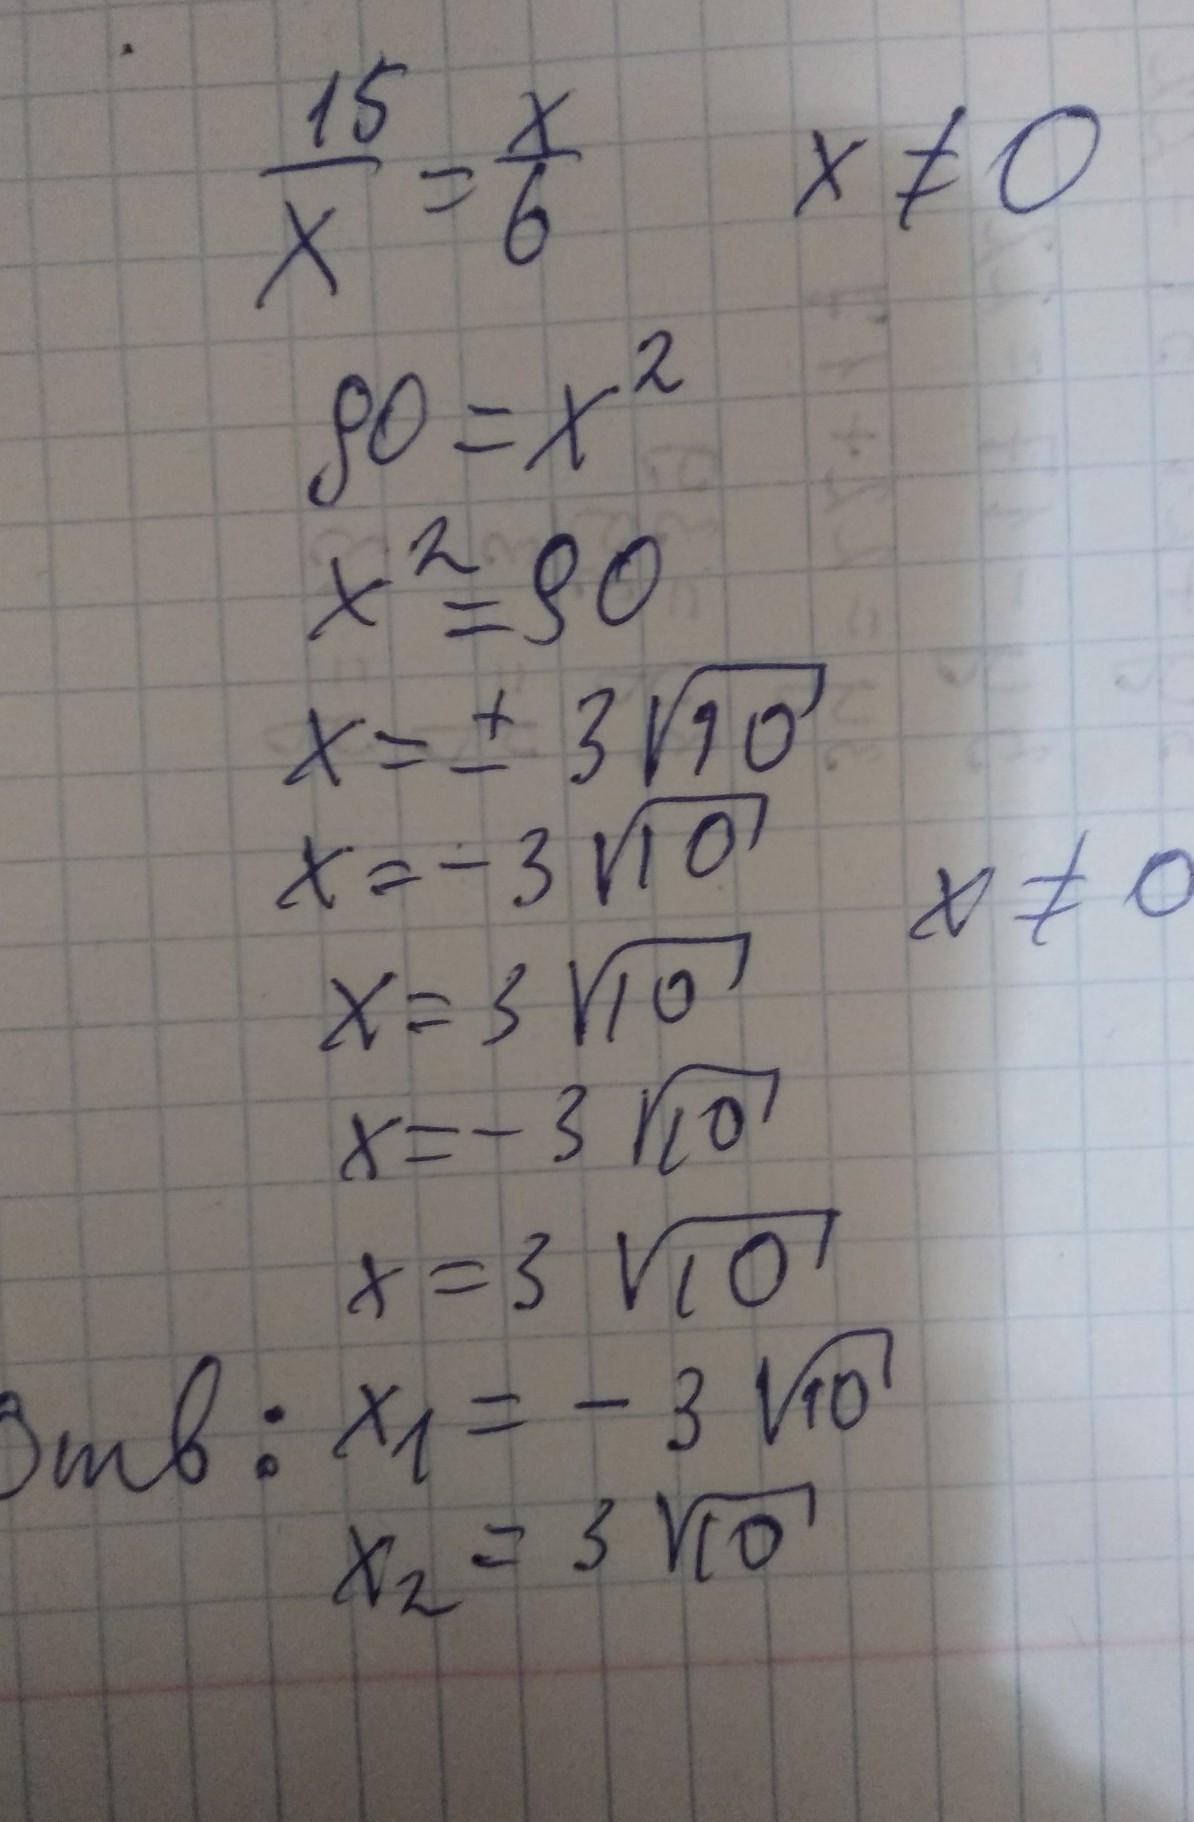 15/x = x/6 x ≠ 0
90 = x²
x² = 90
x = ± 3√10
x = -3√10 x ≠ 0
x = 3√10
x = -3√10
x = 3√10
Отв: x₁ = -3√10
x₂ = 3√10